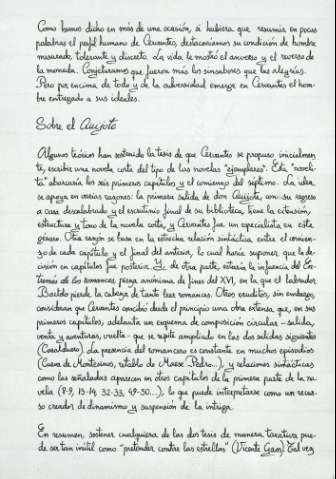 Como hemos dicho en más de una ocasión, si hubiera que resumir en pocas
palabras el perfil humano de Cervantes, destacaríamos su condición de hombre
mesurado, tolerante y discreto. La vida le mostró el anverso y el reverso de
la moneda. Conjeturamos que fueron más los sinsabores que las alegrías.
Pero por encima de todo y de la adversidad emerge en Cervantes el hom-
bre entregado a sus ideales.
Sobre el Quijote
Algunos teóricos han sostenido la tesis de que Cervantes se propuso inicialmen-
te, escribir una novela corta del tipo de las novelas "ejemplares". Esta "noveli-
ta" abarcaría los seis primeros capítulos y el comienzo del séptimo. La idea
se apoya en varias razones: la primera salida de don Quijote, con su regreso
a casa descalabrado y el escrutinio final de su biblioteca, tiene la extensión,
estructura y tono de la novela corta, y Cervantes fue un especialista en este
género. Otra razón se basa en la estrecha relación sintáctica entre el comien-
zo de cada capítulo y el final del anterior, lo cual haría suponer que la de-
cisión en capítulos fue posterior. Y, de otra parte, estaría la influencia del En-
tremés de los romances, pieza anónima de fines del XVI, en la que el labrador
Bartolo pierde la cabeza de tanto leer romances. Otros eruditos, sin embargo,
consideran que Cervantes concibió desde el principio una obra extensa, que, en sus
primeros capítulos, adelanta un esquema de composición circular - salida,
venta y aventuras, vuelta - que se repite ampliado en las dos salidas siguientes
(Casalduero). La presencia del romancero es constante en muchos episodios
(Cueva de Montesinos, retablo de Maese Pedro...), y relaciones sintácticas
como las señaladas aparecen en otros capítulos de la primera parte de la no-
vela (8-9, 13-14, 32-33, 49-50...), lo que puede interpretarse como un recur-
so creador de dinamismo y suspensión de la intriga.
En resumen, sostener cualquiera de las dos tesis de manera taxativa pue-
de ser tan inútil como "pretender contar las estrellas" (Vicente Gaos). Tal vez